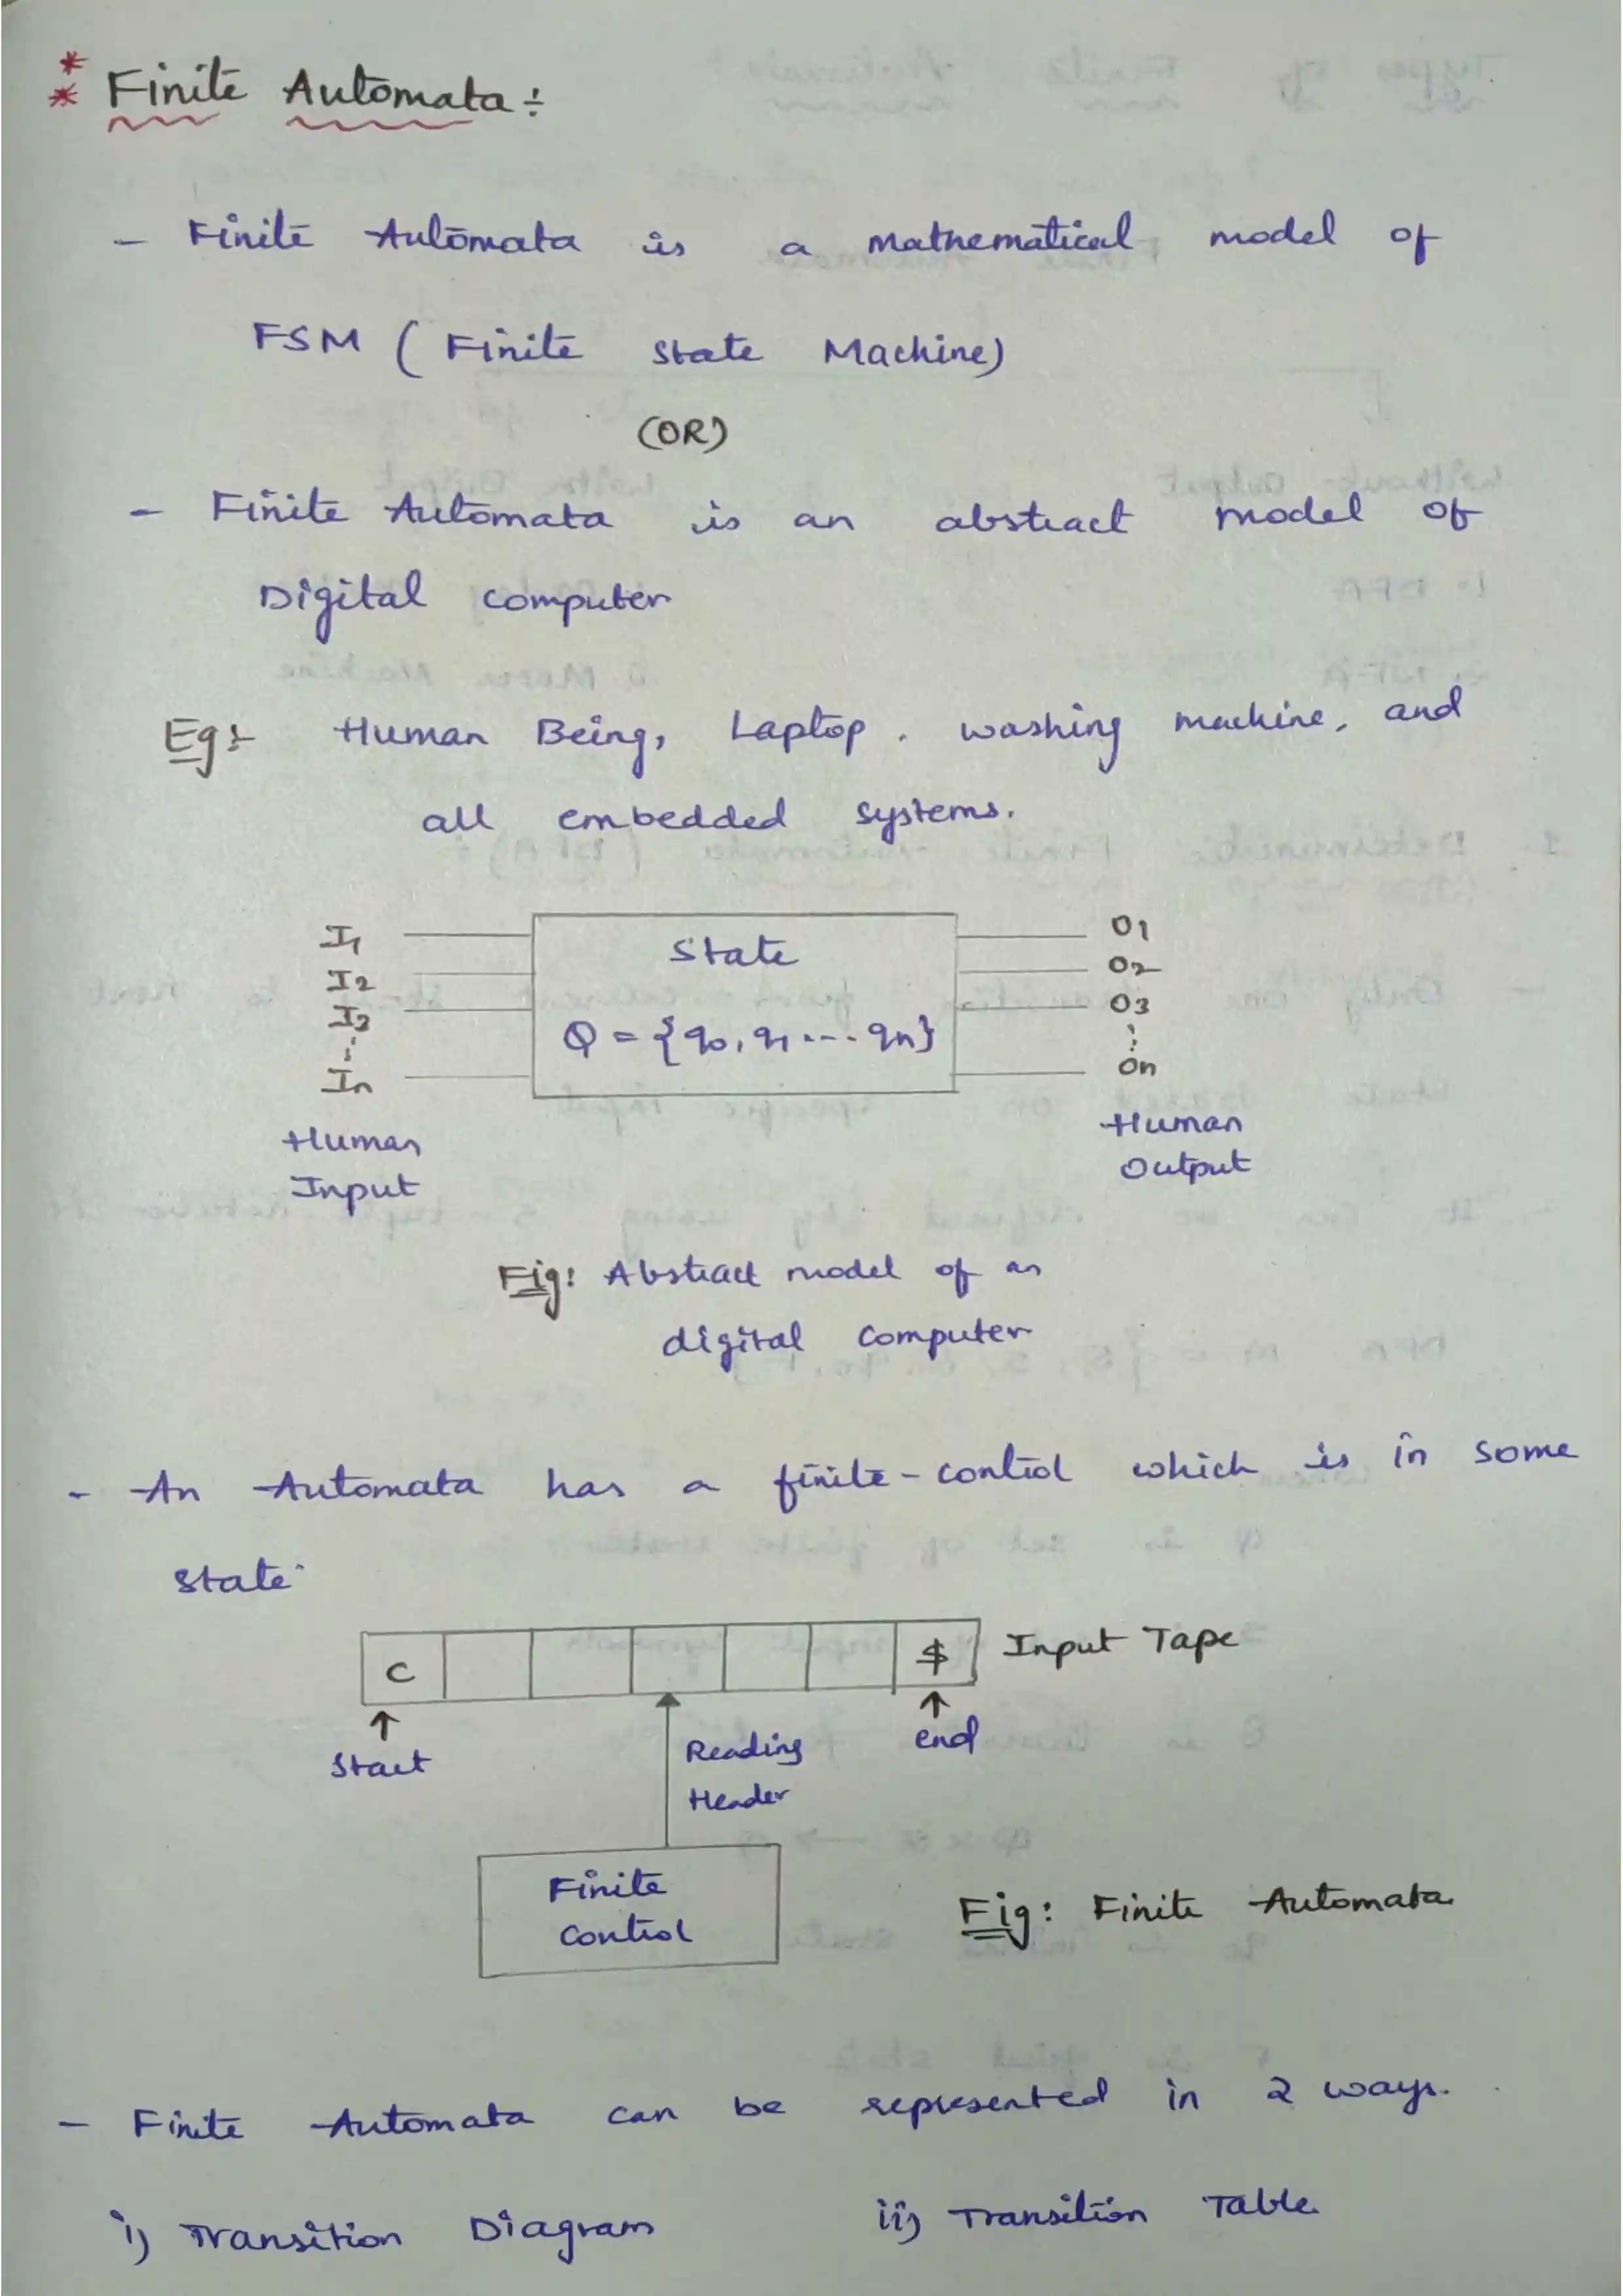 * Finite Automata :-
- Finite Automata is a mathematical model of
FSM ( Finite state Machine)
(OR)
- Finite Automata is an abstract model of
Digital computer
Eg:- Human Being, Laptop, washing machine, and
all embedded systems.
I1
I2
I3
In
Human
Input
State
Q = {q0, q1 ... qn}
O1
O2
O3
On
Human
Output
Fig: Abstract model of an
digital computer
- An Automata has a finite-control which is in some
state.
C $ Input Tape
Start
Reading
Header
end
Finite
Control
Fig: Finite Automata
- Finite Automata can be represented in 2 ways.
i) Transition Diagram ii) Transition Table